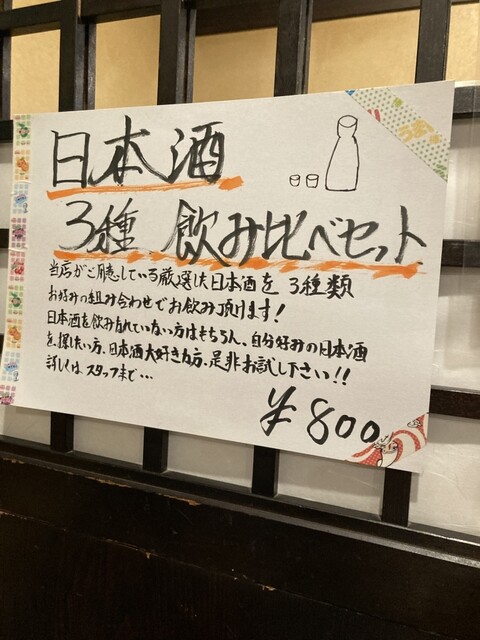 日本酒
3種 飲み比べセット
当店がご用意している厳選した日本酒を 3種類
お好みの組み合わせでお飲み頂けます!
日本酒を飲み慣れていない方はもちろん、自分好みの日本酒
を、探したい方、日本酒大好きな方、是非お試し下さい!!
詳しくは、スタッフまで…
¥800